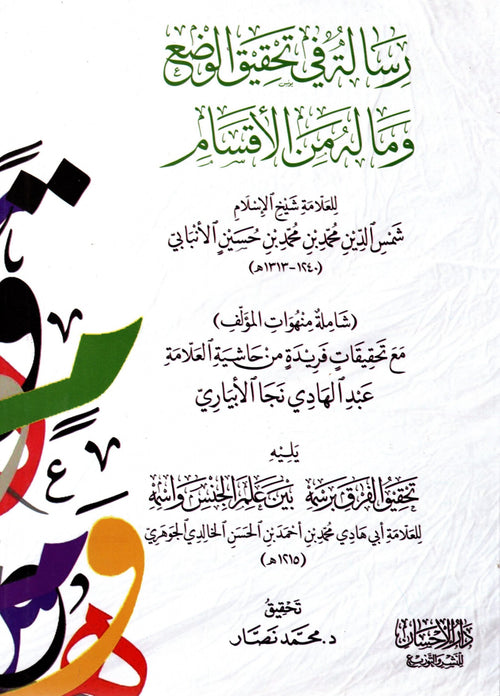 رسالة في تحقيق الوضع
وما له من الأقسام
للعلامة شيخ الإسلام
شمس الدين محمد بن محمد بن حسين الأنبابي
(١٢٤٠-١٣١٣هـ)
(شاملة منهوات المؤلف)
مع تحقيقات فريدة من حاشية العلامة
عبد الهادي نجا الأبياري
يليه
تحقيق الفرق برسمه بين علم الجنس واسمه
للعلامة أبي هادي محمد بن أحمد بن الحسن الخالدي الجوهري
(١٢١٥هـ)
تحقيق
د. محمد نصار
دار الإحسان
للنشر والتوزيع